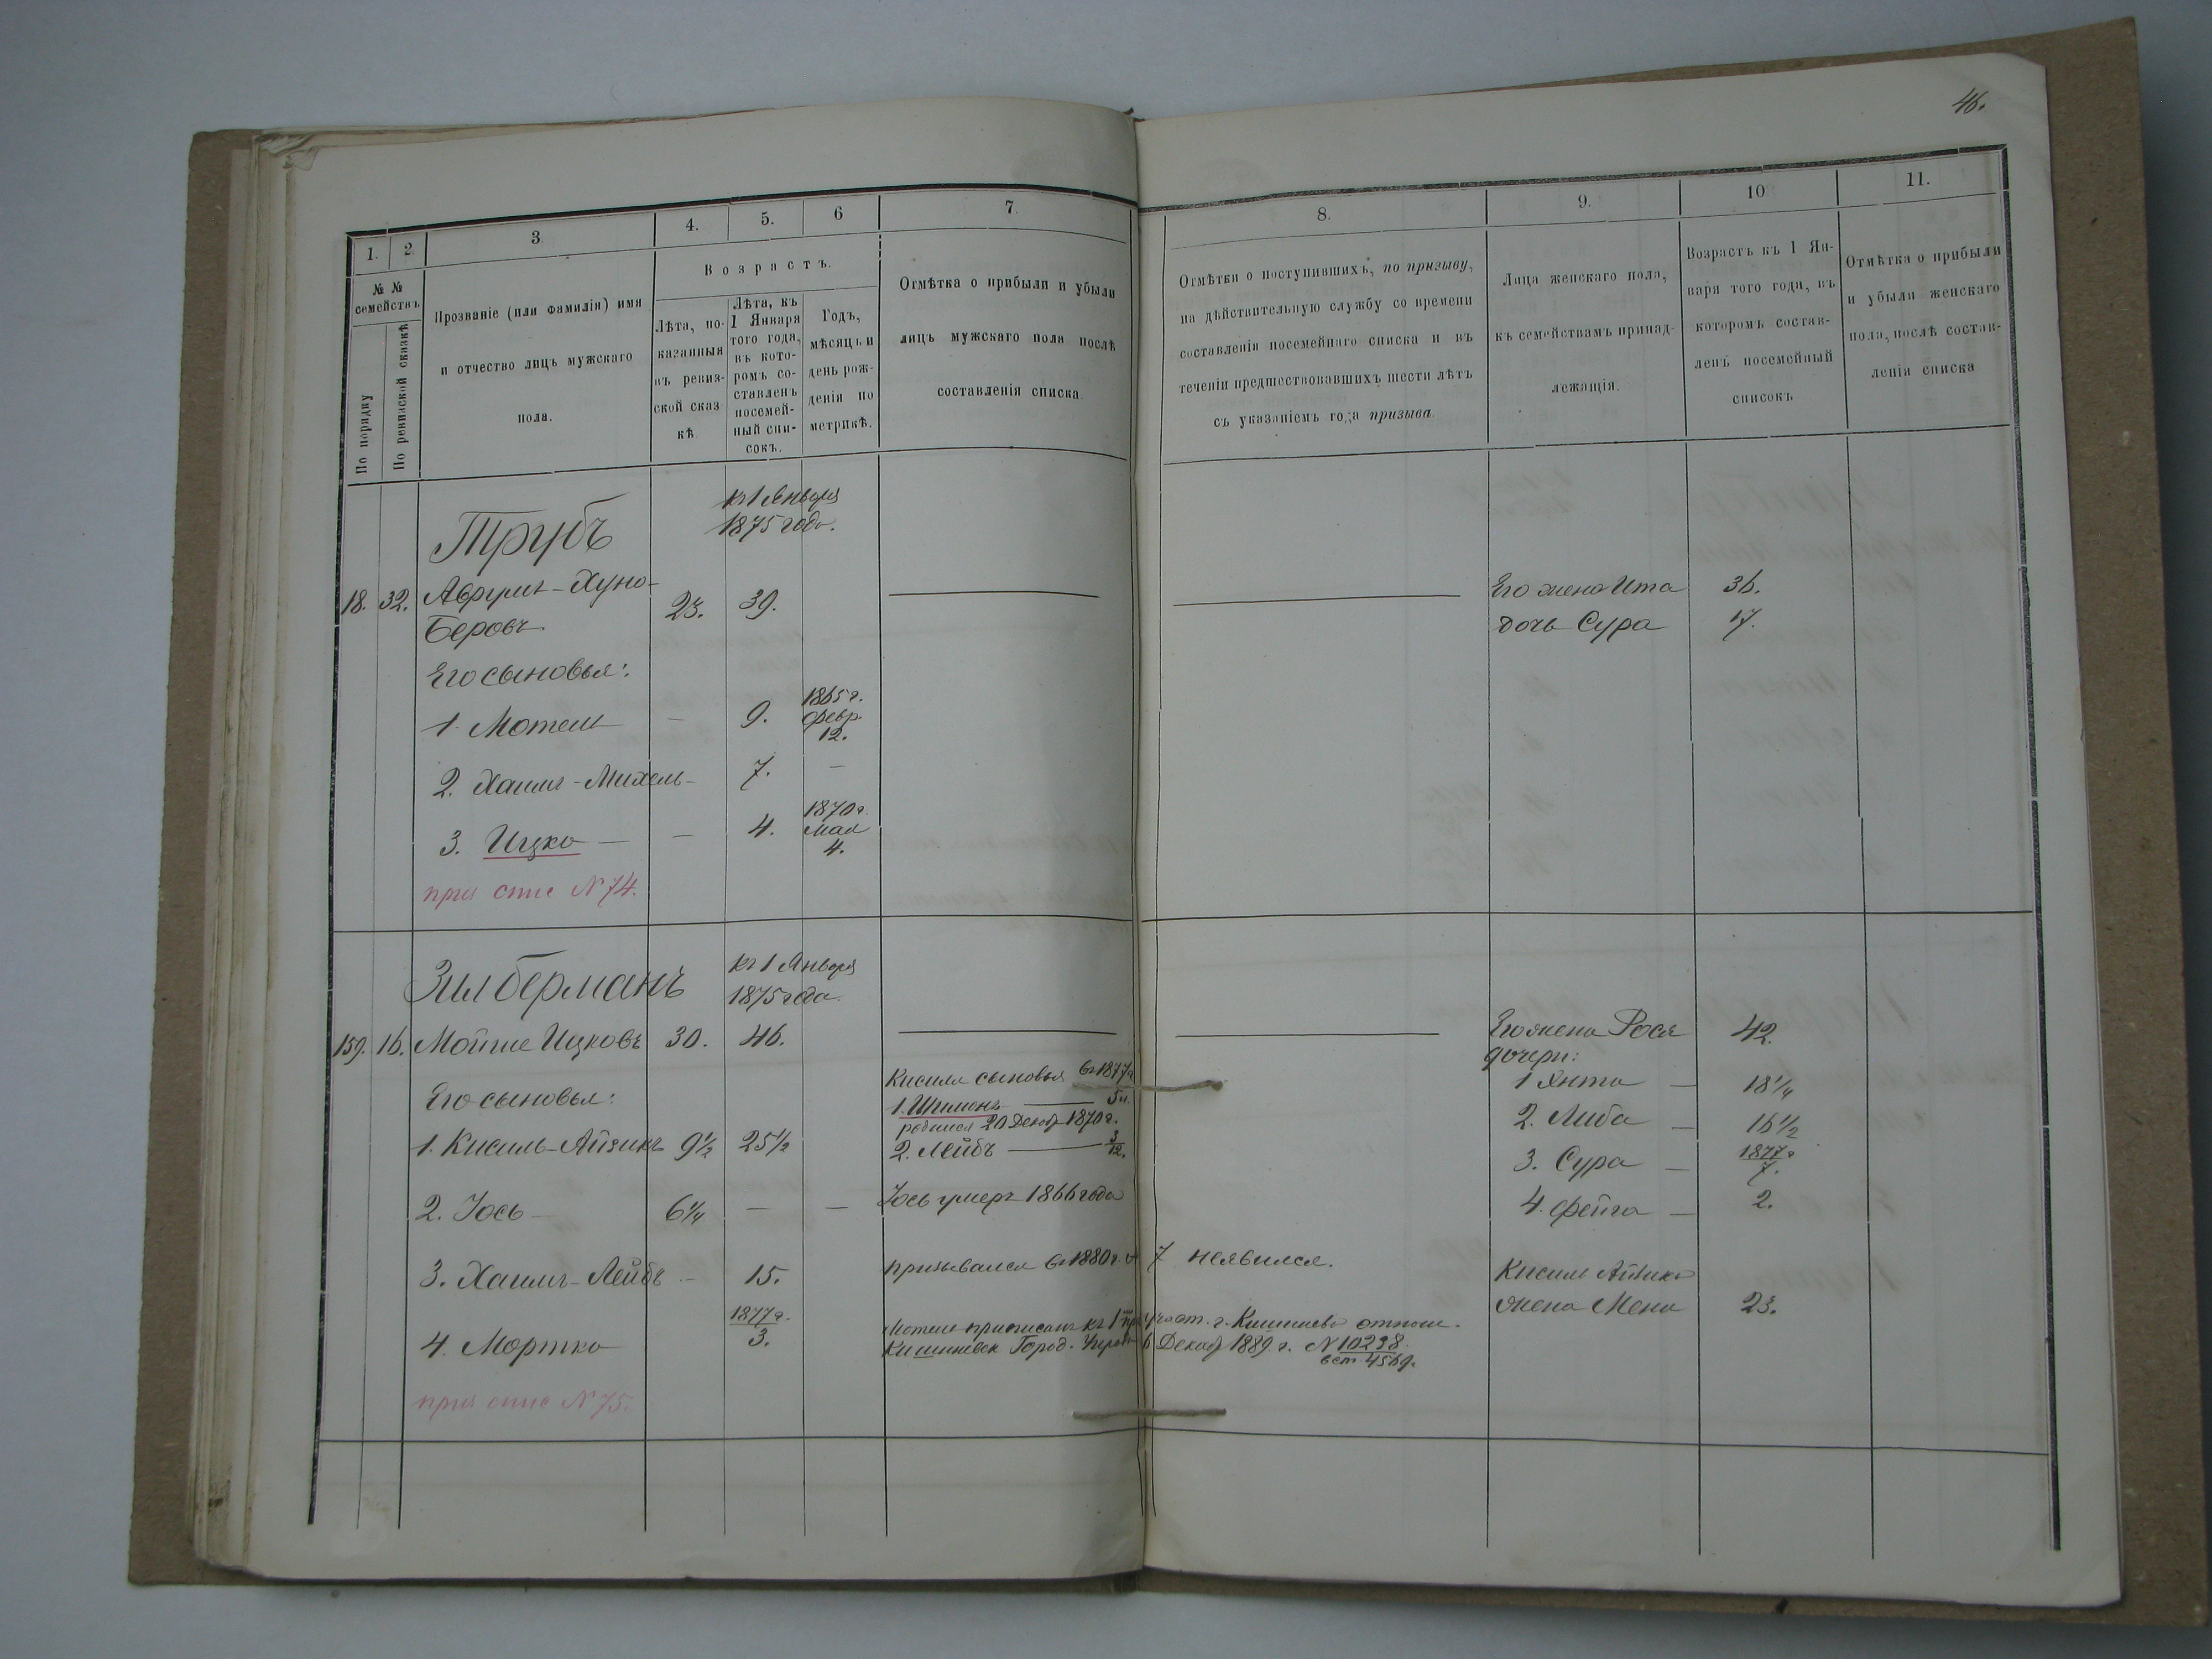 46.
1.
2.
3.
4.
5.
6
7.
8.
9.
10
11.
№ №
семействъ
По порядку
По ревизской сказкѣ
Прозваніе (или фамилія) имя
и отчество лицъ мужскаго
пола.
Возрастъ.
Лѣта, по-
казанныя
въ ревиз-
ской сказ-
кѣ.
Лѣта, къ
1 Января
того года,
въ кото-
ромъ со-
ставленъ
посемей-
ный спи-
сокъ.
Годъ,
мѣсяцъ и
день рож-
денія по
метрикѣ.
Отмѣтка о прибыли и убыли
лицъ мужскаго пола послѣ
составленія списка.
Отмѣтки о поступившихъ, по призыву,
на дѣйствительную службу со времени
составленія посемейнаго списка и въ
теченіи предшествовавшихъ шести лѣтъ
съ указаніемъ года призыва.
Лица женскаго пола,
къ семействамъ принад-
лежащія.
Возрастъ къ 1 Ян-
варя того года, въ
которомъ состав-
ленъ посемейный
списокъ
Отмѣтка о прибыли
и убыли женскаго
пола, послѣ состав-
ленія списка
Трубъ
къ 1 Января
1875 года.
18. 32. Аврумъ-Хуно-
Беровъ 23. 39.
Его жена Ита 36.
дочь Сура 17.
Его сыновья:
1. Мотель — 9. 1865 г.
февр.
12.
2. Хаимъ-Михель- 7. —
3. Ицко — — 4. 1870 г.
мая
4.
приз спис № 74.
Зилберманъ
къ 1 Января
1875 года.
159. 16. Мойше Ицковъ 30. 46.
Его жена Рося 42.
дочери:
1 Янта — 18 1/4
2. Либа — 16 1/2
3. Сура — 1877 г.
7.
4. Фейга — 2.
Его сыновья:
Кисиля сыновья въ 1877 г
1. Шимонъ — 5 л.
родился 20 Декаб 1870 г.
2. Лейбъ — 3/12.
1. Кисиль-Айзикъ 9 1/2 25 1/2
2. Іось — 6 1/4 — — Іось умеръ 1866 года
3. Хаимъ-Лейбъ — 15. призывался въ 1880 г. и неявился.
Кисиль Айзика
жена Мена 23.
4. Мортко 1877 г.
3.
приписанъ къ 1 участ. г. Кишинева отнош.
Кишиневск Город. 6 Декаб 1889 г. № 10238
4569.
приз спис № 75.